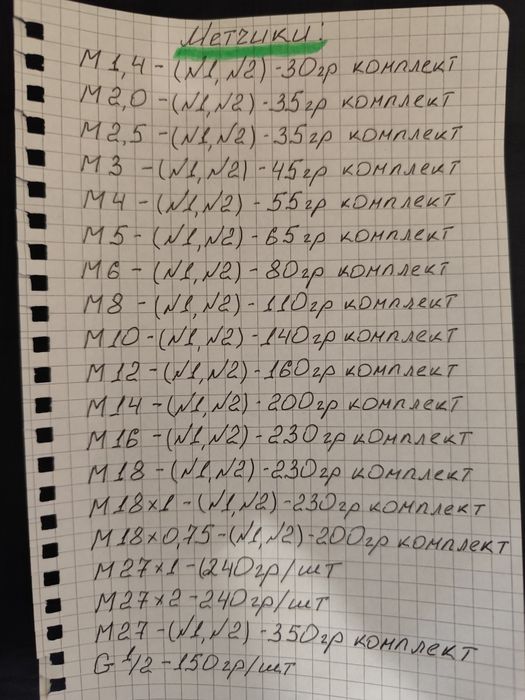 Метчики:
М1,4-(N1,N2)-30гр комплект
М2,0-(N1,N2)-35гр комплект
М2,5-(N1,N2)-35гр комплект
М3-(N1,N2)-45гр комплект
М4-(N1,N2)-55гр комплект
М5-(N1,N2)-65гр комплект
М6-(N1,N2)-80гр комплект
М8-(N1,N2)-110гр комплект
М10-(N1,N2)-140гр комплект
М12-(N1,N2)-160гр комплект
М14-(N1,N2)-200гр комплект
М16-(N1,N2)-230гр комплект
М18-(N1,N2)-230гр комплект
М18х1-(N1,N2)-230гр комплект
М18х0,75-(N1,N2)-200гр комплект
М27х1-(240гр/шт
М27х2-240гр/шт
М27-(N1,N2)-350гр комплект
G 1/2-150гр/шт